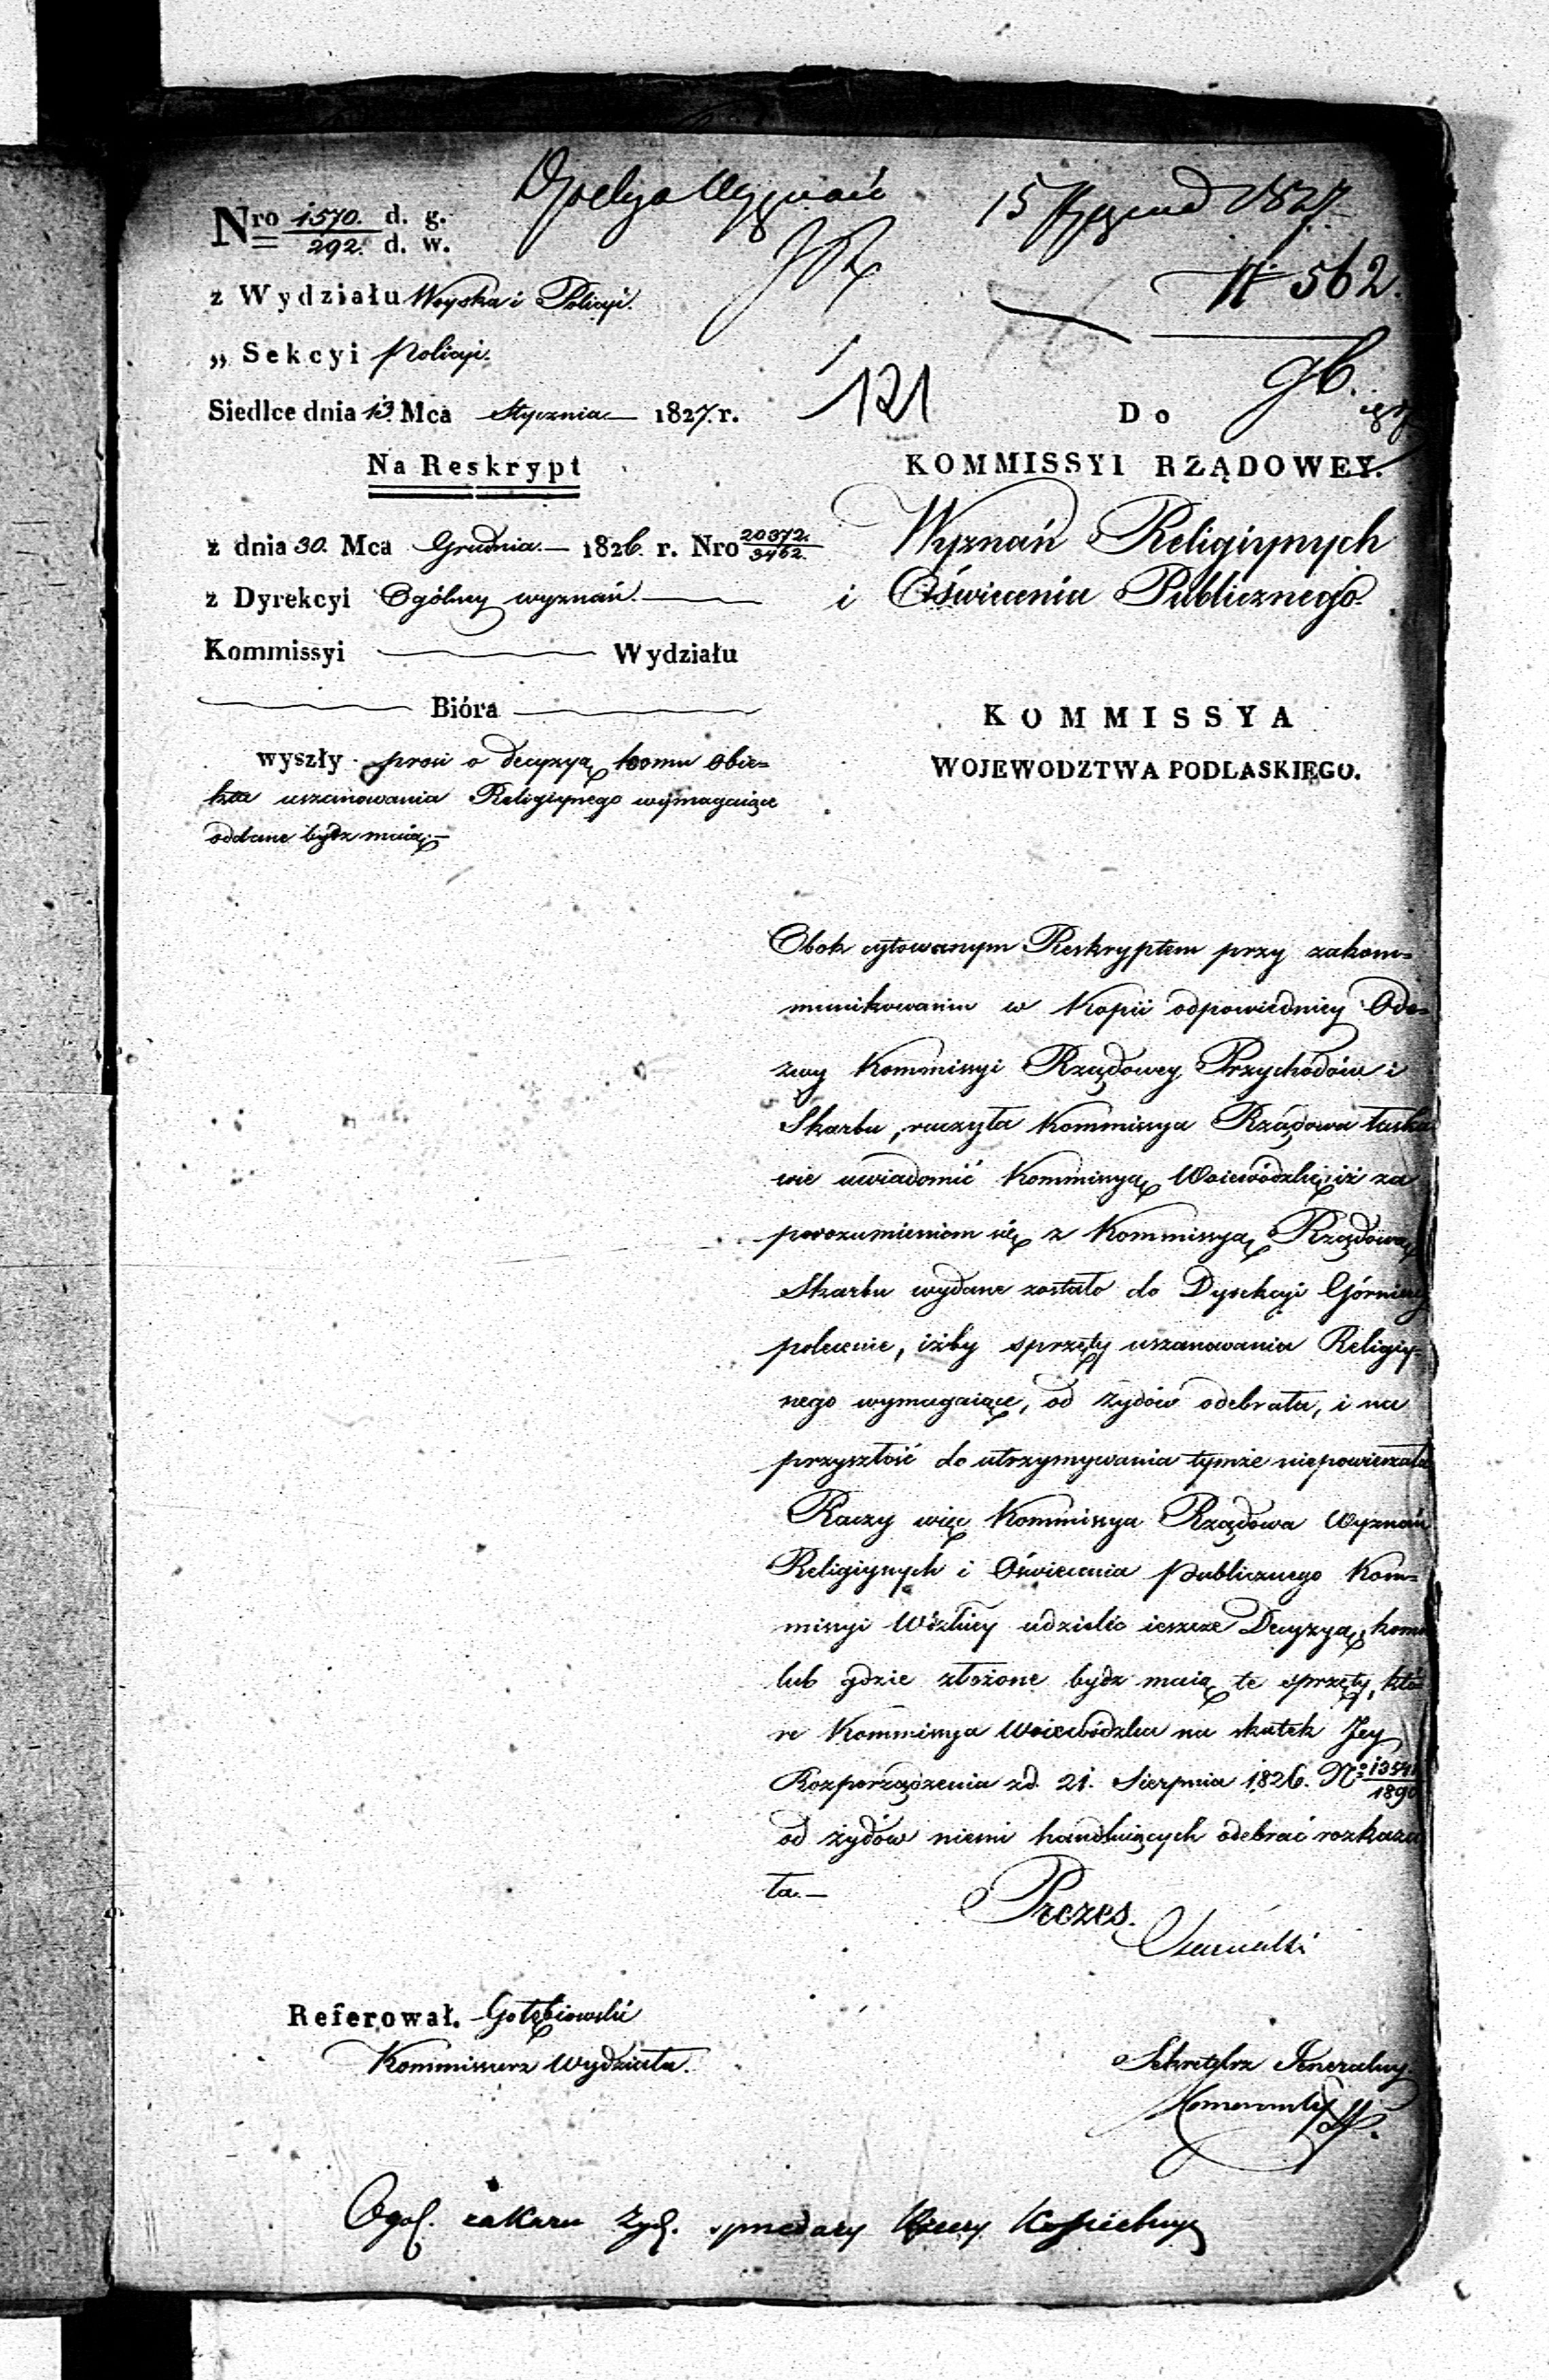 Nro 1570. d. g.
292. d. w.
15 1827
№ 562.
z Wydziału Woyska i Policyi.
„ Sekcyi Policyi.
121
Siedlce dnia 13. Mca Stycznia 1827. r.
Na Reskrypt
z dnia 30. Mca Grudnia. 1826. r. Nro 20372.
z Dyrekcyi Ogólney wyznań.
Kommissyi Wydziału
Bióra
wyszły. prosi o decyzyą komu obie=
kta uszanowania Religiynego wymagaiące
oddane bydz maią.—
Do
KOMMISSYI RZĄDOWEY.
Wyznań Religiynych
i Oświecenia Publicznego.
KOMMISSYA
WOJEWODZTWA PODLASKIEGO.
Obok cytowanym Reskryptem przy zakom=
munikowaniu w Kopii odpowiedniey Ode=
zwy Kommissyi Rządowey Przychodów i
Skarbu, raczyła Kommissya Rządowa łaska
wie uwiadomić Kommissyą Woiewódzką iż za
porozumieniem się z Kommissyą Rządową
Skarbu wydane zostało do Dyrekcyi Górniczey
polecenie, iżby sprzęty uszanowania Religiy=
nego wymagaiące, od żydów odebrała, i na
przyszłość do utrzymywania tymże niepowierzała
Raczy więc Kommissya Rządowa Wyznań
Religiynych i Oświecenia Publicznego Kom=
missyi Wdzkiey udzielić ieszcze Decyzyą, komu
lub gdzie złożone bydz maią te sprzęty, któ
re Kommissya Woiewódzka na skutek Jey
Rozporządzenia z d. 21. Sierpnia 1826. No
od żydów niemi handluiących odebrać rozkaza
ła.—
Prezes.
Referował. Gołębiowski
Kommissarz Wydziału.
Sekretarz Jeneralny
Ogol. zakazu Żyd. sprzedaży Rzeczy Kościelnych